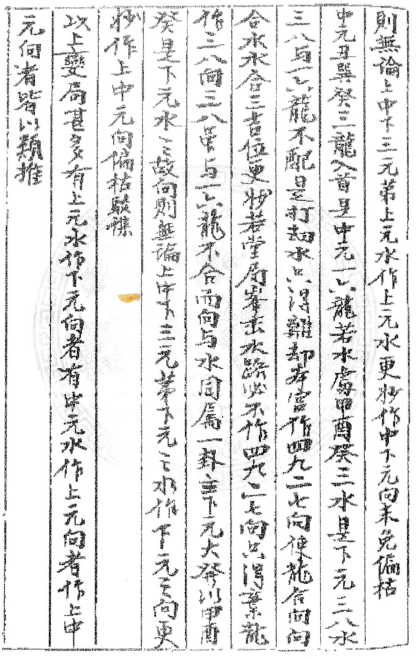 則無論上中下三元第上元水作上元水更妙作中下元向未免偏枯
中元丑巽癸三龍入首是中元一六龍若水處甲酉癸三水是下元三八水
三八与一六龍不配是打劫水只得離却本宮作四九二七向使龍合向向
合水水合三吉位更妙若堂局峯巒水路必不作四九二七向只得棄龍
作三八向三八虽与一六龍不合而向与水同屬一卦主下元大發以甲酉
癸是下元水之故向則無論上中下三元第下元之水作下元之向更
妙作上中元向偏枯駁雜
以上變局甚多有上元水作下元向者有中元水作上元向者作上中
元向者皆以類推